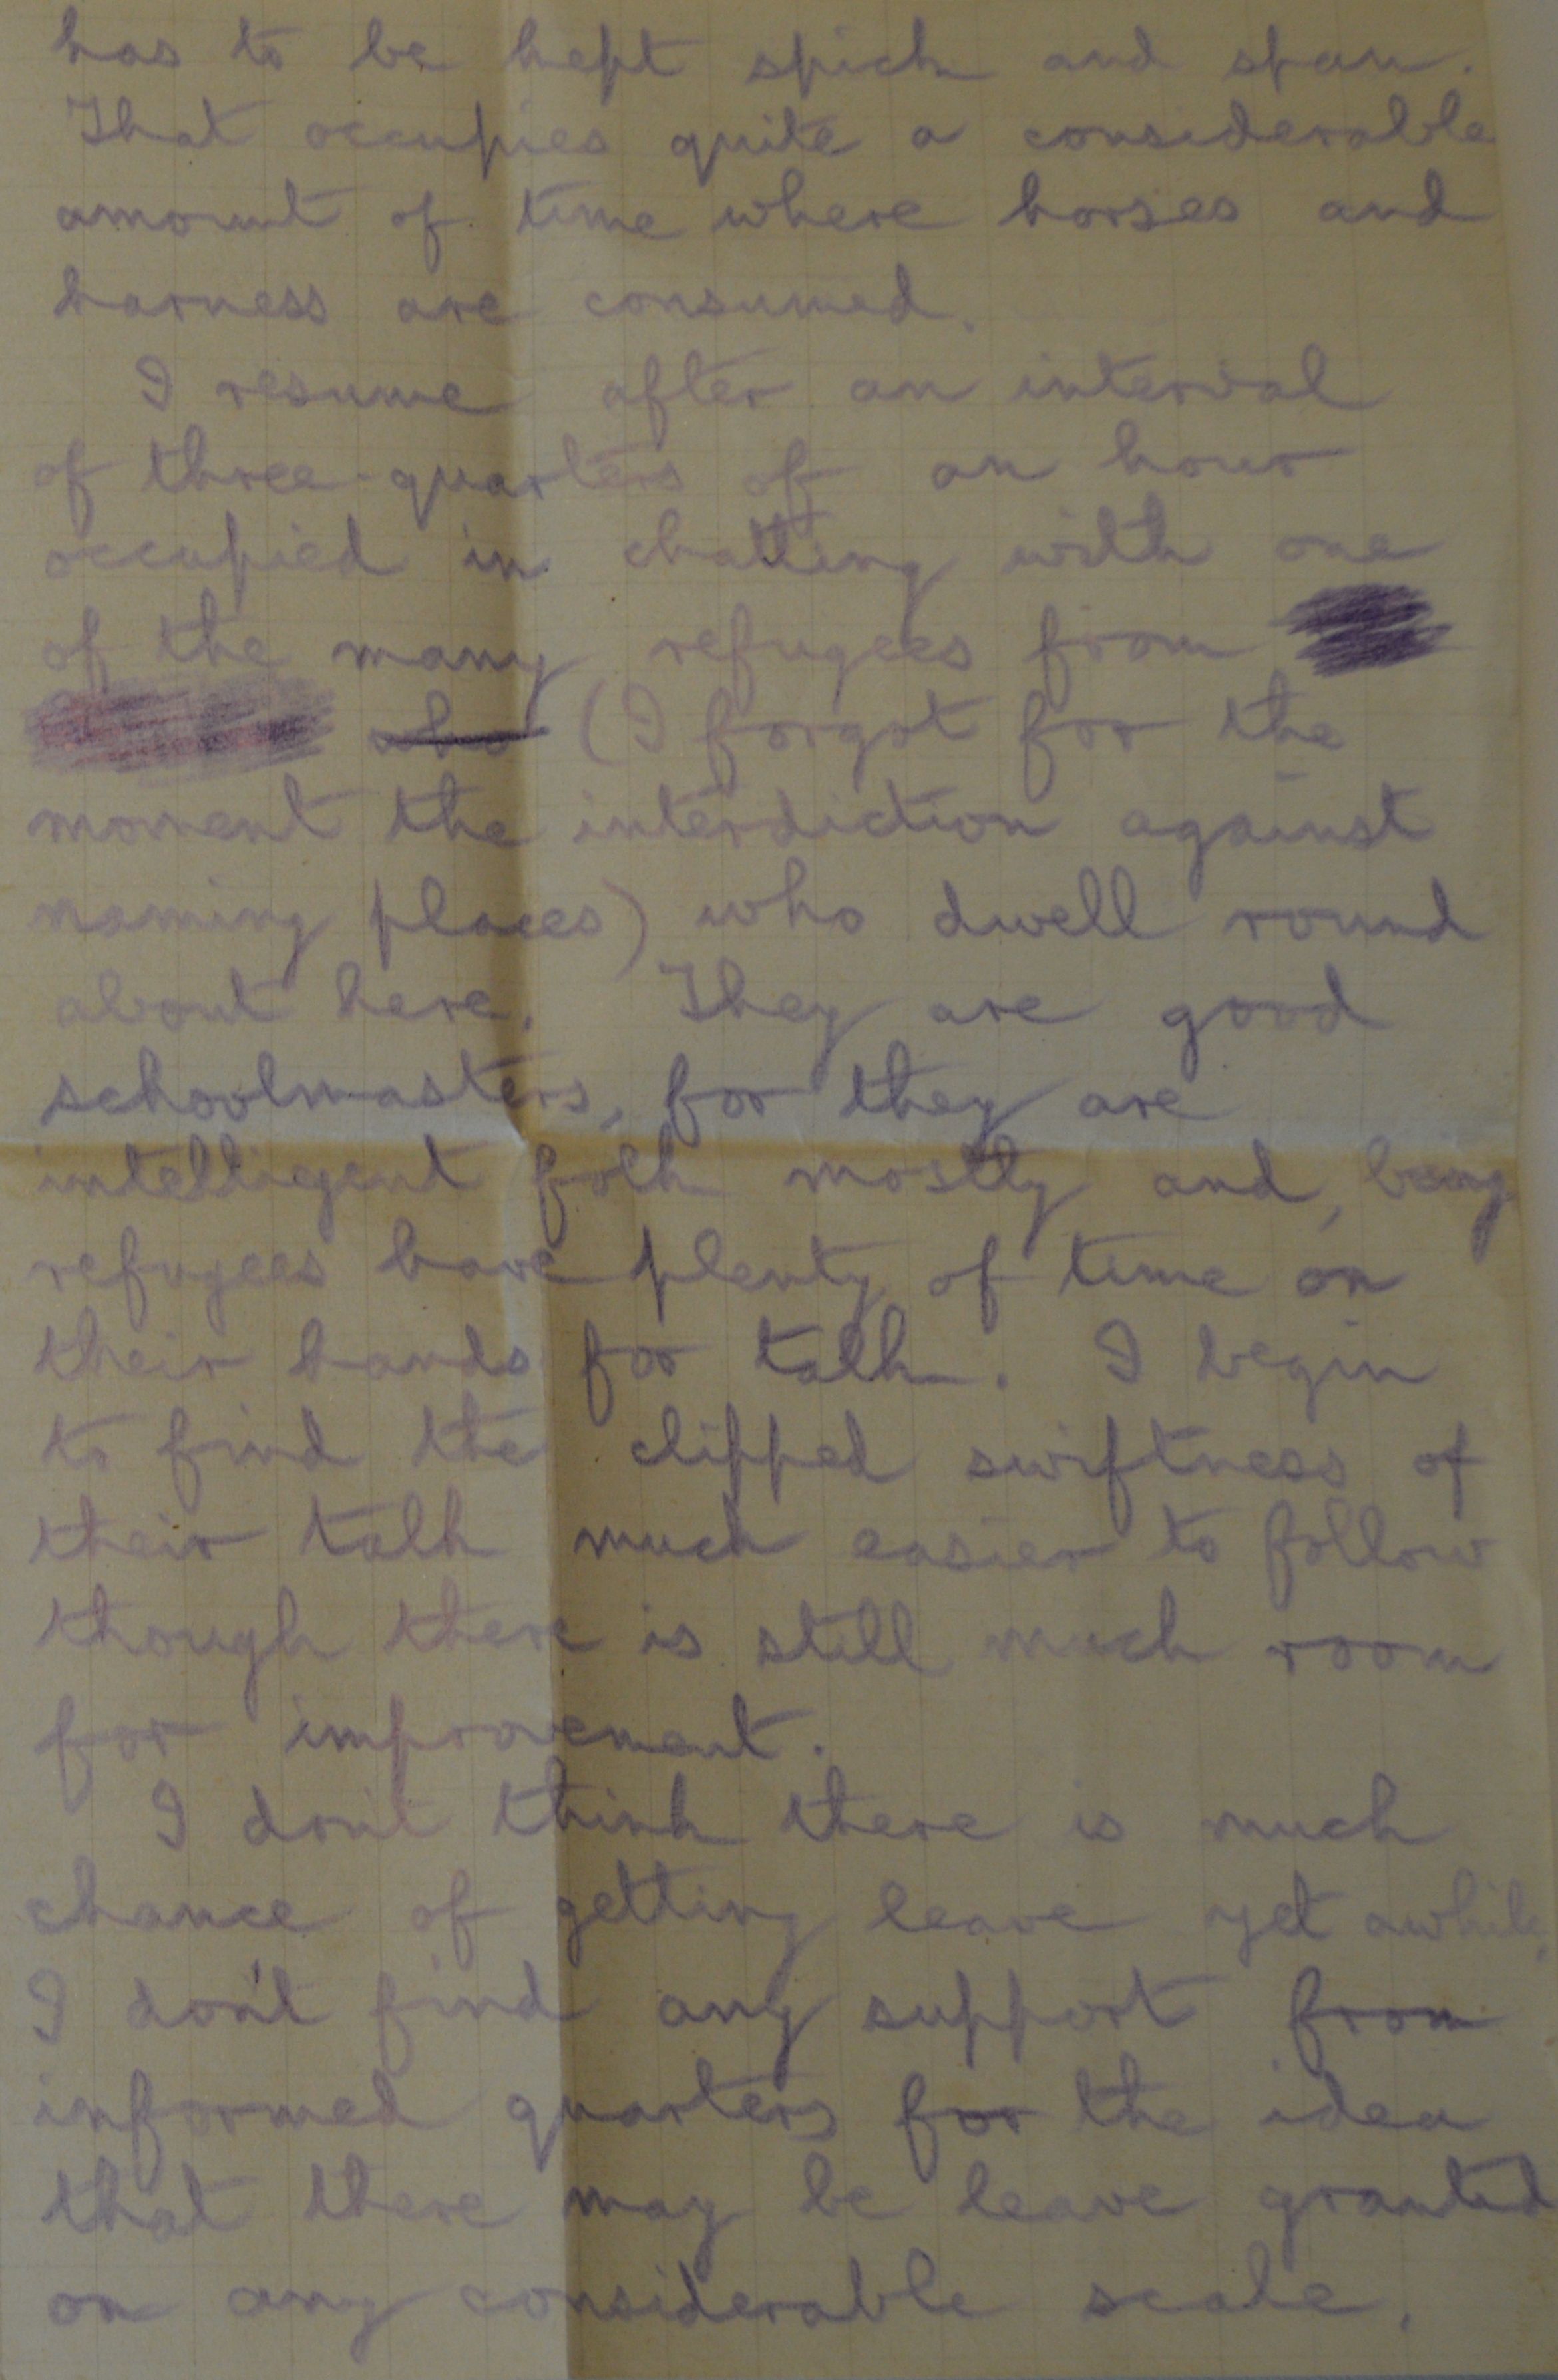 has to be kept spick and span.
That occupies quite a considerable
amount of time where horses and
harness are consumed.
I resume after an interval
of three-quarters of an hour
occupied in chatting with one
of the many refugees from
who (I forgot for the
moment the interdiction against
naming places) who dwell round
about here. They are good
schoolmasters, for they are
intelligent folk mostly and, being
refugees have plenty of time on
their hands for talk. I begin
to find the clipped swiftness of
their talk much easier to follow
though there is still much room
for improvement.
I don't think there is much
chance of getting leave yet awhile.
I don't find any support from
informed quarters for the idea
that there may be leave granted
on any considerable scale.